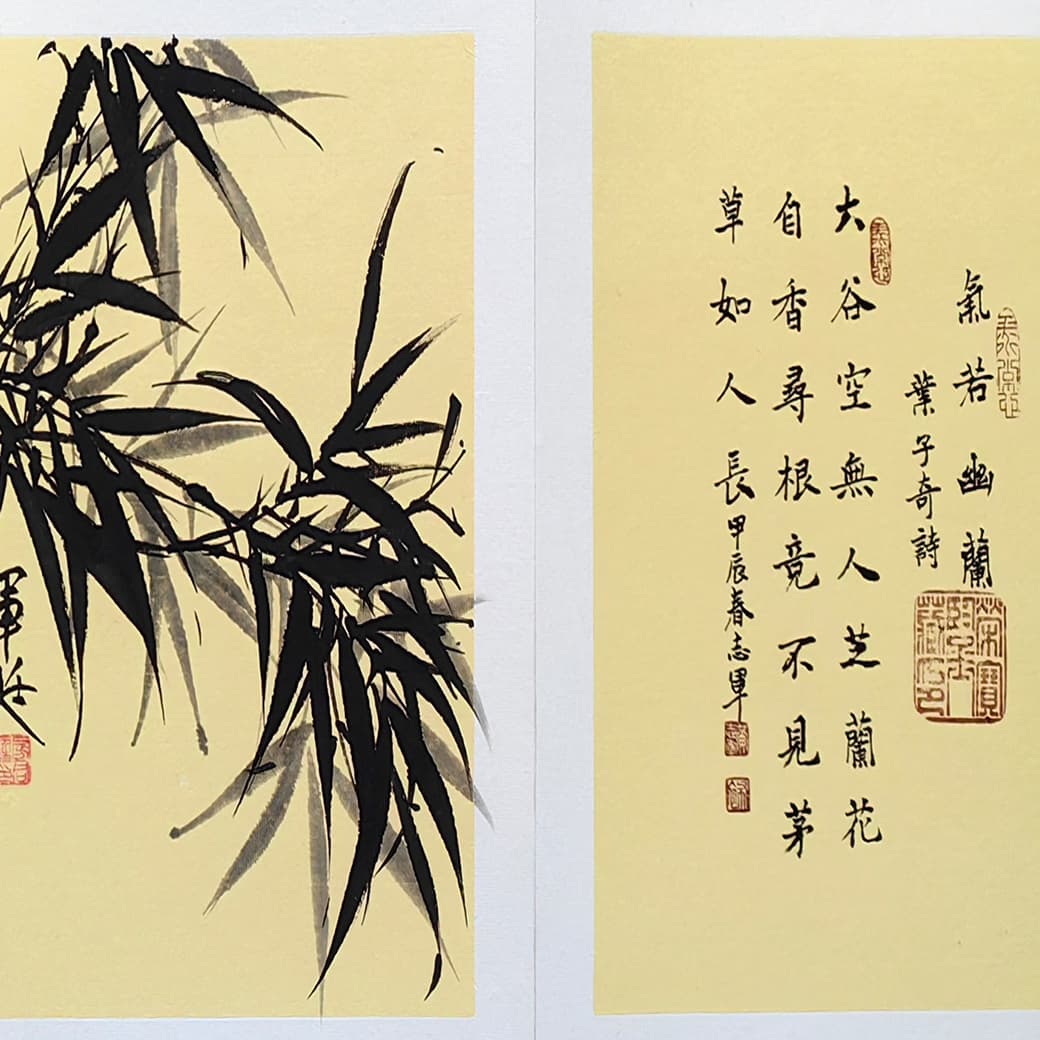 氣若幽蘭
葉子奇詩
大谷空無人芝蘭花
自香尋根竟不見茅
草如人長甲辰春志軍